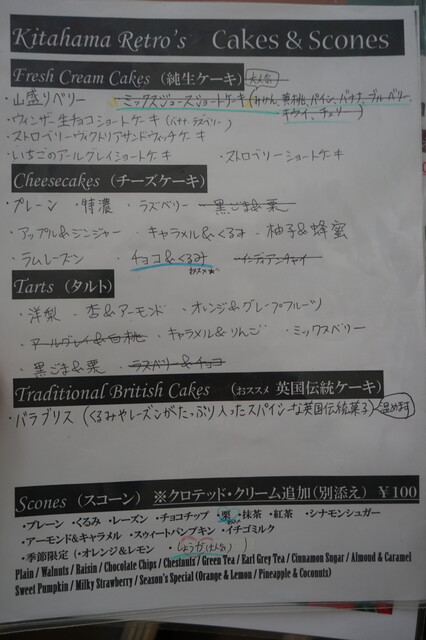 Kitahama Retro's Cakes & Scones
Fresh Cream Cakes (純生ケーキ) 大人気
・山盛りベリー ミックスジュースショートケーキ (みかん、黄桃、パイン、バナナ、ブルーベリー、
キウイ、チェリー)
・ウィンザー生チョコショートケーキ (バナナ、ラズベリー)
・ストロベリーヴィクトリアサンドウィッチケーキ
・いちごのアールグレイショートケーキ ・ストロベリーショートケーキ
Cheesecakes (チーズケーキ)
・プレーン ・特濃 ・ラズベリー ・黒ごま&栗
・アップル&ジンジャー ・キャラメル&くるみ ・柚子&蜂蜜
・ラムレーズン ・チョコ&くるみ ・インディアンチャイ
おススメ
Tarts (タルト)
・洋梨 ・杏&アーモンド ・オレンジ&グレープフルーツ
・アールグレイ&白桃 ・キャラメル&りんご ・ミックスベリー
・黒ごま&栗 ・ラズベリー&チョコ
Traditional British Cakes (おススメ 英国伝統ケーキ)
・バラブリス (くるみやレーズンがたっぷり入ったスパイシーな英国伝統菓子) 温めます
Scones (スコーン) ※クロテッド・クリーム追加(別添え) ¥100
・プレーン ・くるみ ・レーズン ・チョコチップ ・栗 ・抹茶 ・紅茶 ・シナモンシュガー
・アーモンド&キャラメル ・スウィートパンプキン ・イチゴミルク
・季節限定 (・オレンジ&レモン ・しょうが
Plain / Walnuts / Raisin / Chocolate Chips / Chestnuts / Green Tea / Earl Grey Tea / Cinnamon Sugar / Almond & Caramel
Sweet Pumpkin / Milky Strawberry / Season's Special (Orange & Lemon / Pineapple & Coconuts)